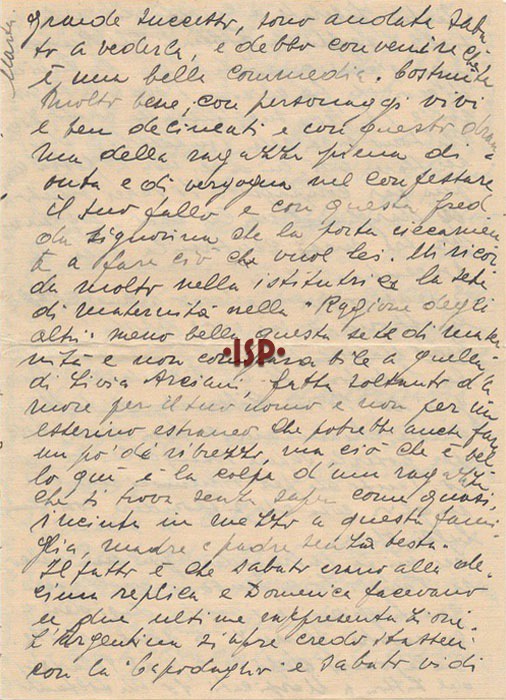 Marta
grande successo, sono andata Saba-
to a vederla, e debbo convenire ci
è una bella commedia. Costruita
molto bene, con personaggi vivi
e ben delineati e con questo dram
ma della ragazza piena di
onta e di vergogna nel confessare
il suo fallo e con questa fred
da signorina che la porta ciecamen
te a fare ciò che vuol lei. Mi ricor
da molto nella istitutrice la sete
di maternità nella "Ragione degli
altri" meno bella questa sete di mater
nità e non comparabile a quella
di Livia Arciani, fatta soltanto d'a
more per il suo uomo e non per un
esserino estraneo che potrebbe anche far
un po' di ribrezzo, ma ciò che è bel
lo qui è la colpa d'una ragazza
che si trova senza saper come quasi,
incinta in mezzo a questa fami-
glia, madre e padre senza testa.
Il fatto è che sabato erano alla de-
cima replica e Domenica facevano
le due ultime rappresentazioni.
L'Argentina si apre credo stasera
con la "Capodaglio" e sabato vidi
•ISP•